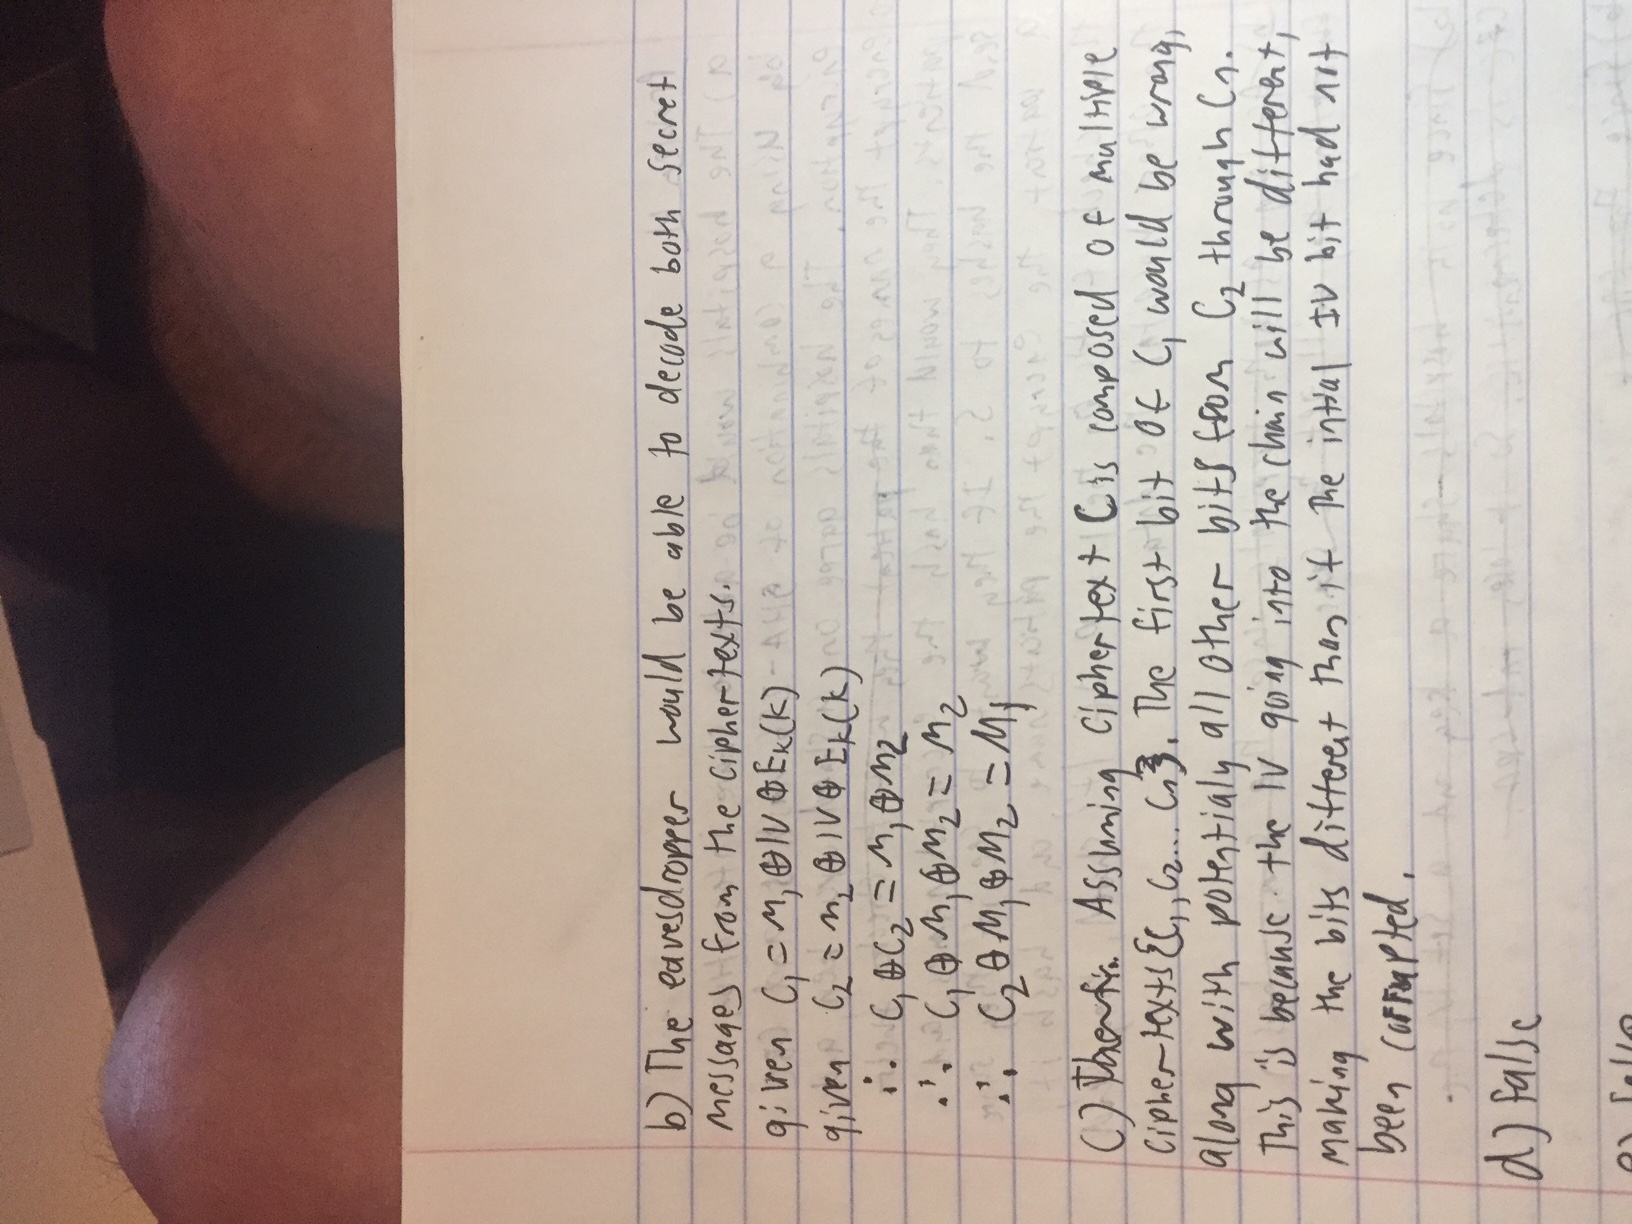 b) The eavesdropper would be able to decode both secret
messages from the ciphertexts.
given C₁ = M₁ ⊕ IV ⊕ Eₖ(K)
given C₂ = M₂ ⊕ IV ⊕ Eₖ(K)
∴ C₁ ⊕ C₂ = M₁ ⊕ M₂
∴ C₁ ⊕ M₁ ⊕ M₂ = M₂
∴ C₂ ⊕ M₁ ⊕ M₂ = M₁
C) Assuming ciphertext C is composed of multiple
ciphertexts {C₁, C₂... Cn}. The first bit of C₁ would be wrong,
along with potentialy all other bits from C₂ through Cn.
This is because the IV going into the chain will be different,
making the bits different than if the intial IV bit had not
been corrupted.
d) false